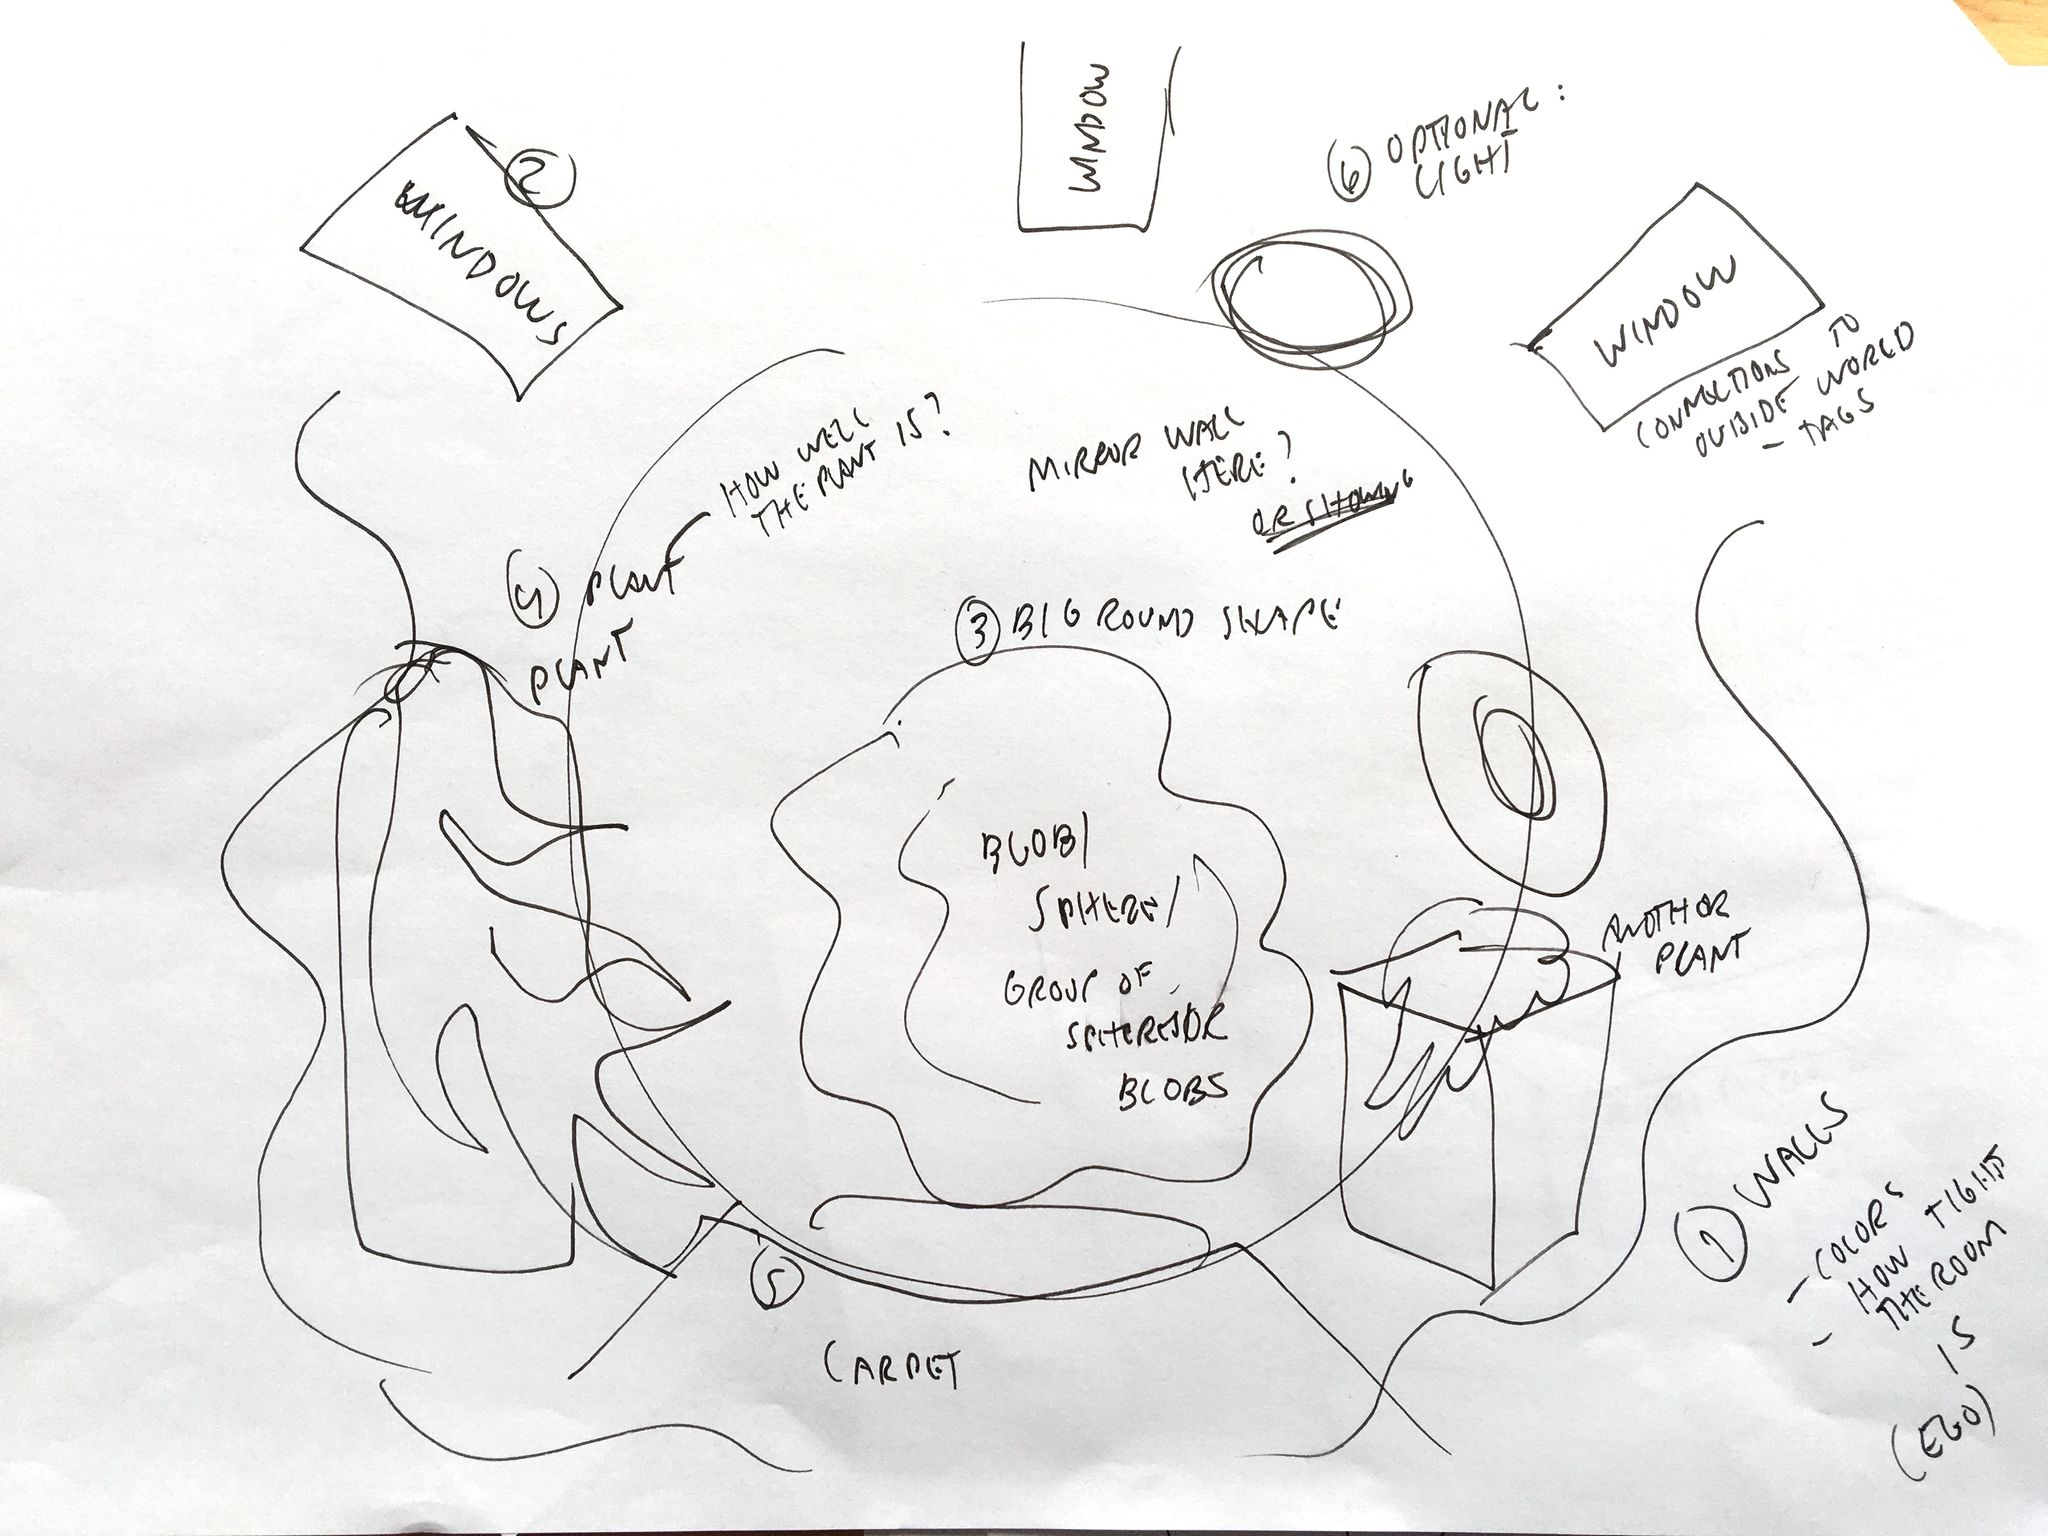 WINDOW
2
WINDOWS
6 OPTIONAL:
LIGHT
WINDOW
CONNECTIONS TO
OUTSIDE WORLD
- TAGS
HOW WELL
THE PLANT IS?
MIRROR WALL
HERE?
OR SHOWING
4 PLANT
PLANT
3 BIG ROUND SHAPE
BLOB/
SPHERE/
GROUP OF
SPHERES OR
BLOBS
ANOTHER
PLANT
5
CARPET
1 WALLS
- COLORS
- HOW TIGHT
THE ROOM
IS
(EGO)